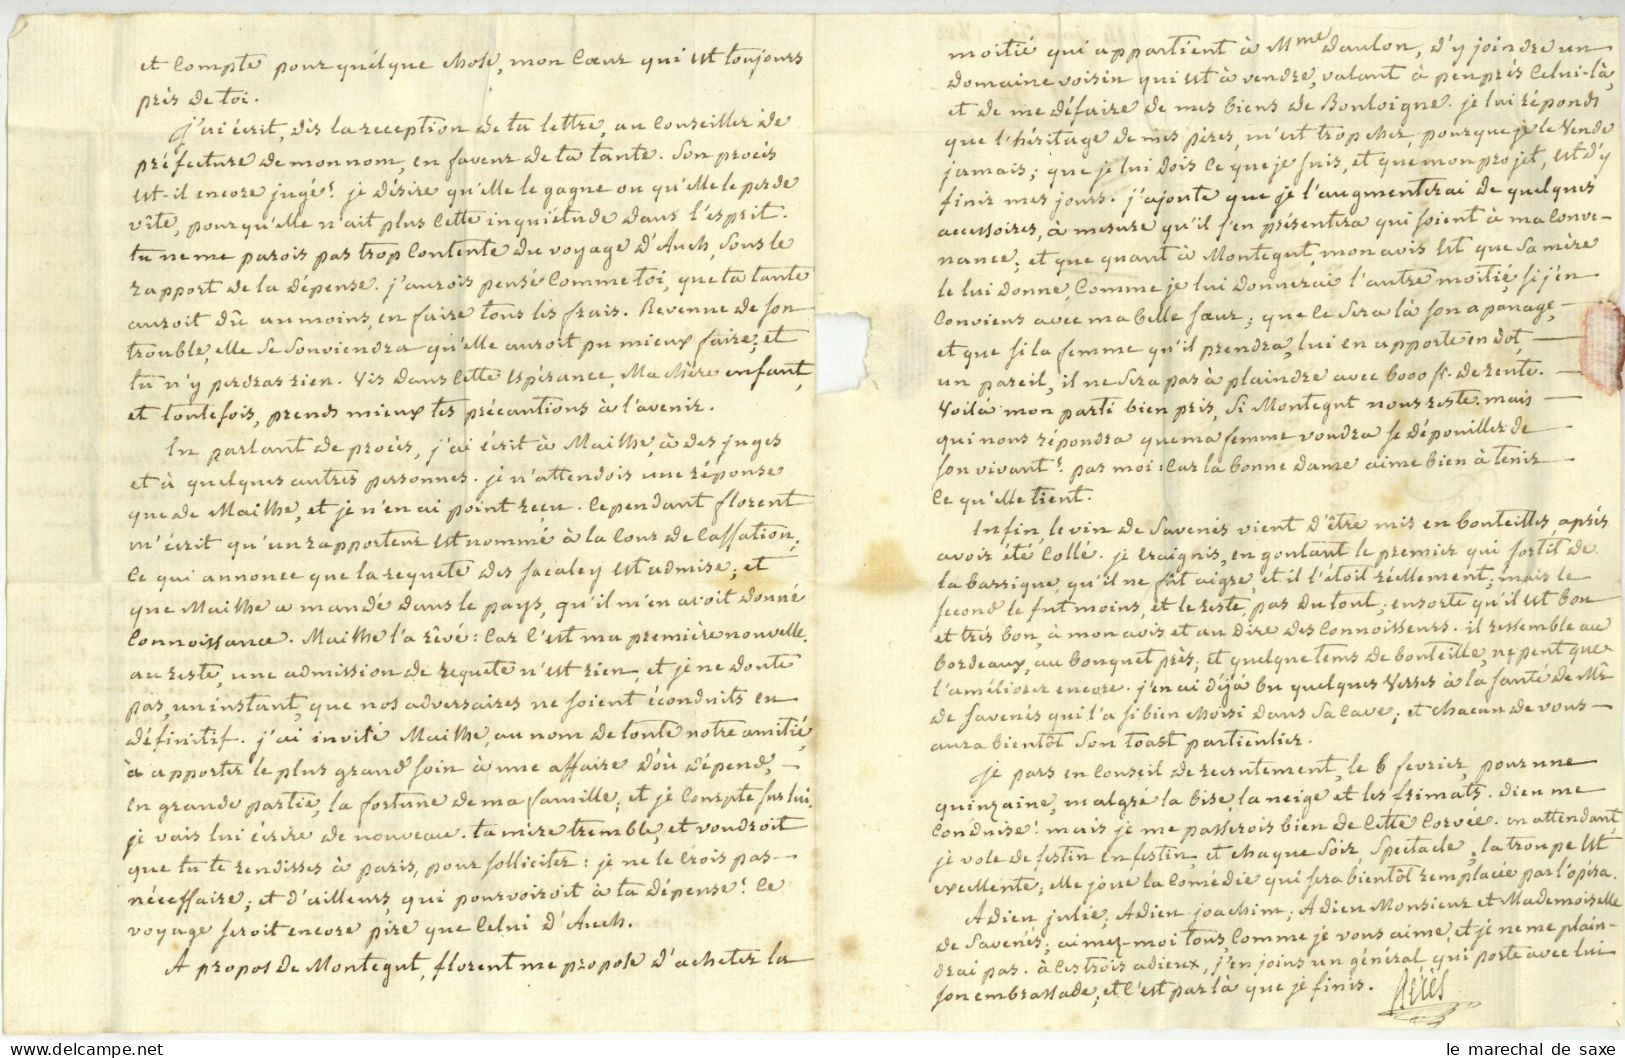 et compte pour quélque chose, mon cœur qui est toujours
près de toi.
j'ai écrit, dès la reception de ta lettre, au conseiller de
préfecture de mon nom, en faveur de ta tante. Son procès
est-il encore jugé? je désire qu'elle le gagne ou qu'elle le perde
vîte, pour qu'elle n'ait plus cette inquiétude dans l'esprit.
tu ne me parois pas trop contente du voyage d'Auch, sous le
rapport de la dépense. j'aurois pensé comme toi, que ta tante
auroit dû au moins, en faire tous les frais. Revenue de son
trouble, elle se souviendra qu'elle auroit pu mieux faire; et
tu n'y perdras rien. Vis dans cette espérance, Ma chère enfant,
et toutefois, prends mieux tes précautions à l'avenir.
En parlant de procès, j'ai écrit à Mailhe, à des juges
et à quelques autres personnes. je n'attendois une réponse
que de Mailhe, et je n'en ai point reçu. Cependant florent
m'écrit qu'un rapporteur est nommé à la Cour de Cassation,
ce qui annonce que la requete des sacaley est admise; et
que Mailhe a mandé dans le pays, qu'il m'en avoit donné
connoissance. Mailhe l'a rêvé: car c'est ma première nouvelle.
au reste, une admission de requete n'est rien, et je ne doute
pas, un instant, que nos adversaires ne soient éconduits en
définitif. j'ai invité Mailhe, au nom de toute notre amitié,
à apporter le plus grand soin à une affaire d'où dépend,
en grande partie, la fortune de ma famille; et je compte sur lui.
je vais lui écrire de nouveau. ta mère tremble, et voudroit
que tu te rendisses à paris, pour solliciter: je ne le crois pas
nécessaire; et d'ailleurs, qui pourvoiroit à ta dépense? ce
voyage seroit encore pire que celui d'Auch.
A propos de Montegut, florent me propose d'acheter la
moitié qui appartient à Mme daulon, d'y joindre un
domaine voisin qui est à vendre, valant à peu près celui-là,
et de me défaire de mes biens de Bouloigne. je lui réponds
que l'héritage de mes pères, m'est trop cher, pour que je le vende
jamais; que je lui dois ce que je suis, et que mon projet, est d'y
finir mes jours. j'ajoute que je l'augmenterai de quelques
accessoires, à mesure qu'il s'en présentera qui soient à ma conve-
nance; et que quant à Montegut, mon avis est que sa mère
le lui donne, comme je lui donnerai l'autre moitié, si j'en
conviens avec ma belle sœur; que ce sera là son apanage,
et que si la femme qu'il prendra, lui en apporte en dot,
un pareil, il ne sera pas à plaindre avec 6000 fr. de rente.
Voilà mon parti bien pris, si Montegut nous reste. mais
qui nous répondra que ma femme voudra se dépouiller de
son vivant? pas moi: car la bonne dame aime bien à tenir
ce qu'elle tient.
Enfin, le vin de Savenés vient d'être mis en bouteilles, après
avoir été collé. je craignis, en goutant le premier qui sortit de
la barrique, qu'il ne fût aigre, et il l'étoit réellement; mais le
second le fut moins, et le reste, pas du tout; ensorte qu'il est bon
et très bon, à mon avis et au dire des connoisseurs. il ressemble au
bordeaux, au bouquet près; et quelque tems de bouteille, ne peut que
l'améliorer encore. j'en ai déjà bu quelques verres à la santé de Mr
de Savenés qui l'a si bien choisi dans sa cave; et chacun de vous
aura bientôt son toast particulier.
je pars en conseil de recrutement, le 6 fevrier, pour une
quinzaine, malgré la bise, la neige et les frimats. dieu me
conduise! mais je me passerois bien de cette corvée. en attendant,
je vole de festin en festin, et chaque soir, spectacle; la troupe est
excellente; elle joue la comédie qui sera bientôt remplacée par l'opéra.
Adieu julie, Adieu joachim; Adieu Monsieur et Mademoiselle
de Savenés; aimez-moi tous, comme je vous aime, et je ne me plain-
drai pas. à ces trois adieux, j'en joins un général, qui porte avec lui
son embrassade; et c'est par là que je finis.
le marechal de saxe